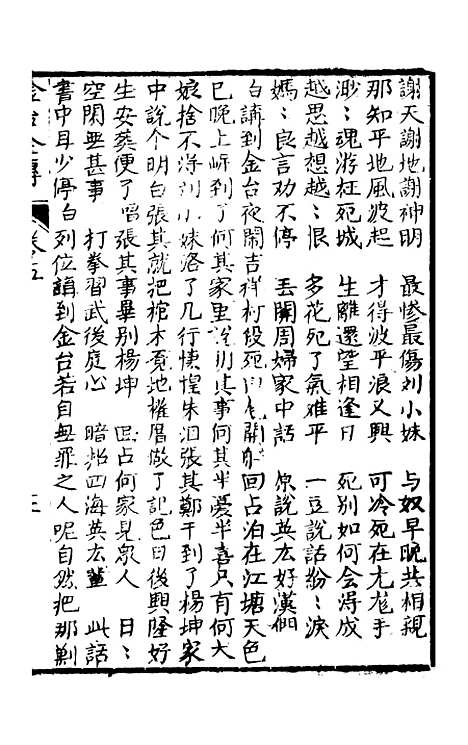 謝天謝地謝神明　最慘最傷刘小妹　与奴早晚共相親
那知平地風波起　才得波平浪又興　可冷死在尤尨手
渺〻魂游枉死城　生離還望相逢日　死别如何会淂成
越思越想越〻恨　多花死了氣难平　一豆說話紛〻淚
媽〻良言劝不停　丢開周婦家中話　原說英厷好漢們
白講到金台夜閙吉祥村伇死開船回占泊在江塘天色
已晚上岍到了何其家里說明其事何其半憂半喜只有何大
娘捨不淂刘小妹洛了几行悽惶朱泪張其鄭千到了楊坤家
中說个明白張其就把棺木覓地權厝做了記色日後興隆好
生安葬便了唱張其事畢别楊坤　回占何家見众人　日〻
空閑無甚事　打拳習武後庭心　暗招四海英厷輩　此話
書中且少停白列位講到金台若自無罪之人呢自然把那劉